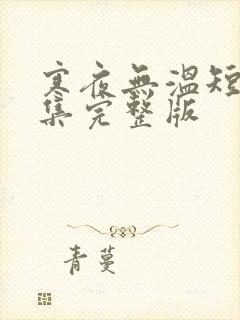 寒夜無溫短
集完整版
青蔓